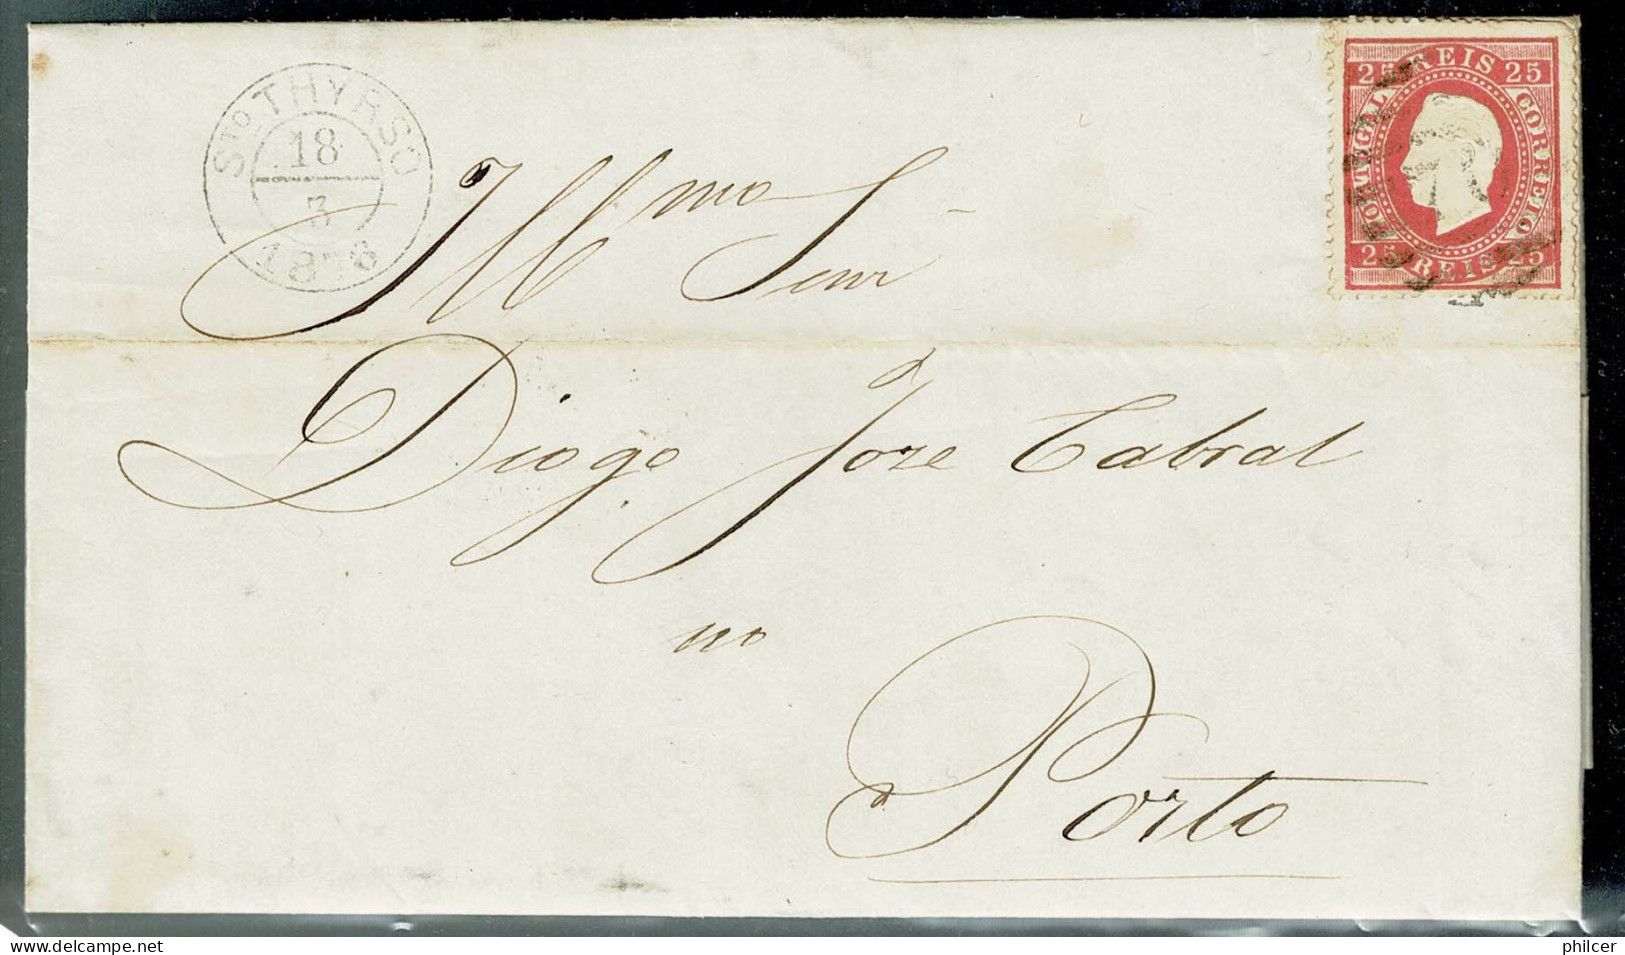 Sto THYRSO
18
3
1878
25 REIS 25
PORTUGAL
CORREIO
25 REIS 25
Illmo Snr
Diogo Jose Cabral
no
Porto
philcer